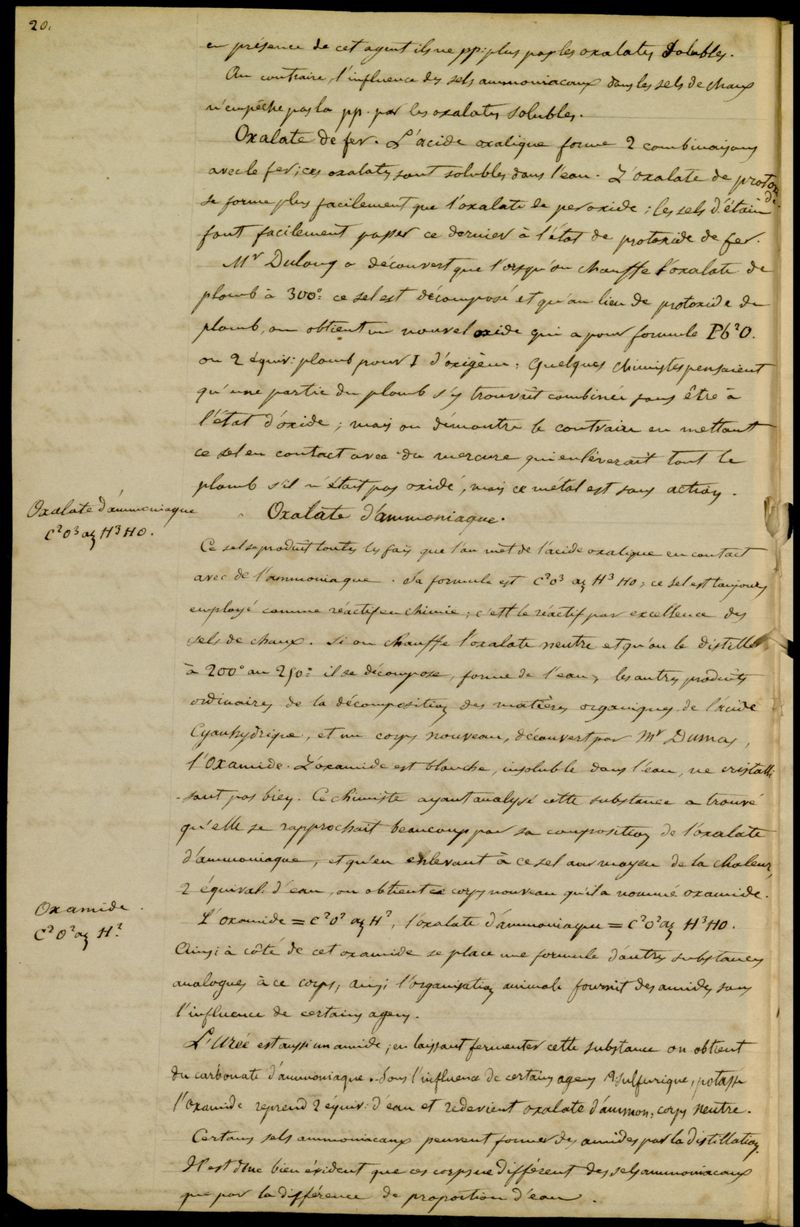 20.
en présence de cet agent ils ne pp: plus par les oxalates solubles.
Au contraire, l'influence des sels ammoniacaux dans les sels de chaux
n'empêche pas la pp. par les oxalates solubles.
Oxalate de fer. L'acide oxalique forme 2 combinaisons
avec le fer; ces oxalates sont solubles dans l'eau. L'oxalate de protoxide
se forme plus facilement que l'oxalate de peroxide; les sels d'étain
font facilement passer ce dernier à l'état de protoxide de fer.
Mr Dulong a découvert que lorsqu'on chauffe l'oxalate de
plomb à 300° ce sel est décomposé et qu'au lieu de protoxide de
plomb, on obtient un nouvel oxide qui a pour formule Pb²O.
ou 2 équiv: plomb pour 1 d'oxigène. Quelques chimistes pensaient
qu'une partie du plomb s'y trouvait combinée sans être à
l'état d'oxide; mais on démontre le contraire en mettant
ce sel en contact avec du mercure qui enlèverait tout le
plomb s'il n'était pas oxidé, mais ce métal est sans action.
Oxalate d'ammoniaque
C²O³ az H³ HO.
Oxalate d'ammoniaque.
Ce sel se produit toutes les fois que l'on met de l'acide oxalique en contact
avec de l'ammoniaque. Sa formule est C²O³ az H³ HO; ce sel est toujours
employé comme réactif en chimie; c'est le réactif par excellence des
sels de chaux. Si on chauffe l'oxalate neutre et qu'on le distille
à 200° au 250° il se décompose, forme de l'eau, les autres produits
ordinaires de la décomposition des matières organiques de l'acide
Cyanhydrique, et un corps nouveau, découvert par Mr Dumas,
l'Oxamide. L'oxamide est blanche, insoluble dans l'eau, ne cristalli
-sant pas bien. Ce chimiste ayant analysé cette substance a trouvé
qu'elle se rapprochait beaucoup par sa composition de l'oxalate
d'ammoniaque, et qu'en enlevant à ce sel au moyen de la chaleur,
2 équival. d'eau, on obtient ce corps nouveau qu'il a nommé oxamide.
Oxamide.
C²O² az H²
L'oxamide = C²O² az H², l'oxalate d'ammoniaque = C²O² az H³HO.
Ainsi à côté de cet oxamide se place une formule d'autres substances
analogues à ce corps, ainsi l'organisation animale fournit des amides sans
l'influence de certains agens.
L'Urée est aussi un amide; en laissant fermenter cette substance on obtient
du carbonate d'ammoniaque. Sous l'influence de certains agens A. sulfurique, potasse
l'oxamide reprend 2 équiv. d'eau et redevient oxalate d'ammon, corps neutre.
Certains sels ammoniacaux peuvent former des amides par la distillation.
Il est donc bien évident que ces corps ne diffèrent des sels ammoniacaux
que par la différence de proportion d'eau.